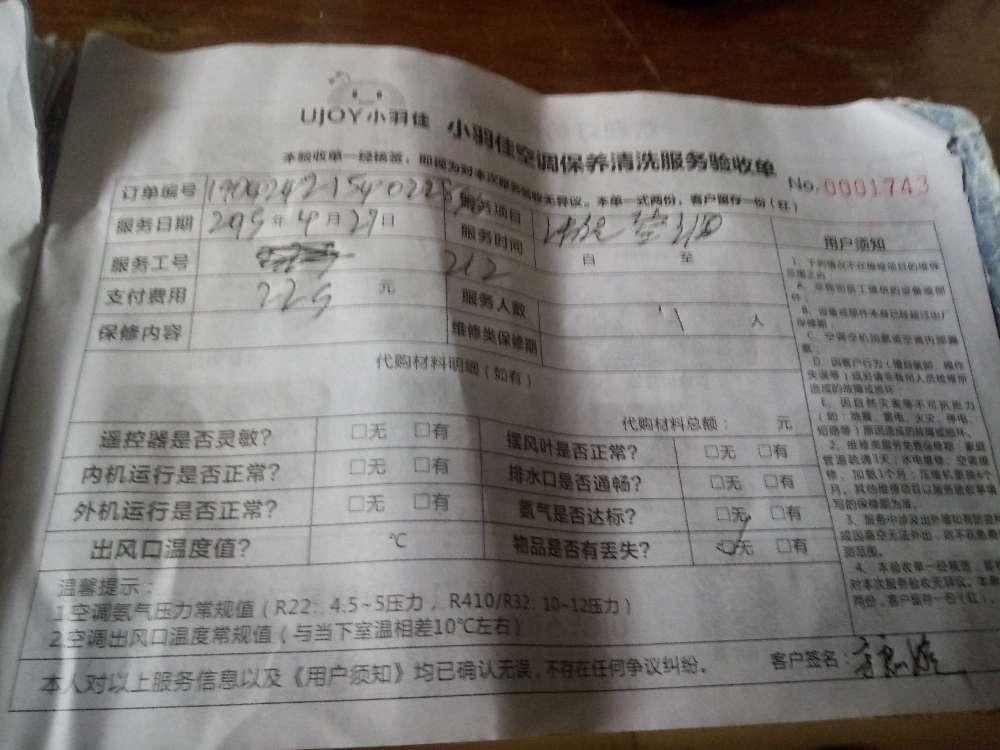 UJOY小羽佳 小羽佳空调保养清洗服务验收单
本验收单一经核签，即视为对本次服务验收无异议。本单一式两份，客户留存一份（红）
No. 0001743
订单编号 服务项目
服务日期 年 4 月 27 日 服务时间 自 至
服务工号 212
支付费用 229 元 服务人数 1 人
保修内容 维修类保修期
代购材料明细（如有）
代购材料总额： 元
遥控器是否灵敏？ □无 □有 摆风叶是否正常？ □无 □有
内机运行是否正常？ □无 □有 排水口是否通畅？ □无 □有
外机运行是否正常？ □无 □有 氨气是否达标？ □无 □有
出风口温度值？ ℃ 物品是否有丢失？ □无 □有
温馨提示：
1.空调氨气压力常规值（R22：4.5~5压力，R410/R32: 10~12压力）
2.空调出风口温度常规值（与当下室温相差10℃左右）
本人对以上服务信息以及《用户须知》均已确认无误，不存在任何争议纠纷。
客户签名：
用户须知
1、下列情况不在维修项目的维保
范围之内
B、设备或部件本身已经超过出厂
保修期
D、因客户行为（擅自装卸、操作
失误等）或邀请非我司人员检修所
造成的故障或损坏；
E、因自然灾害等不可抗拒力
（如：地震、雷电、火灾、停电、
短路等）原因造成的故障或损坏。
2、维修类服务免费保修期：家庭
管道疏通1天；水电维修、空调维
修、加氨1个月；压缩机更换6个
月。其他维修项目以服务验收单填
写的保修期为准。
4、本验收单一经核签，
对本次服务验收无异议。本单
两份，客户留存一份（红）。